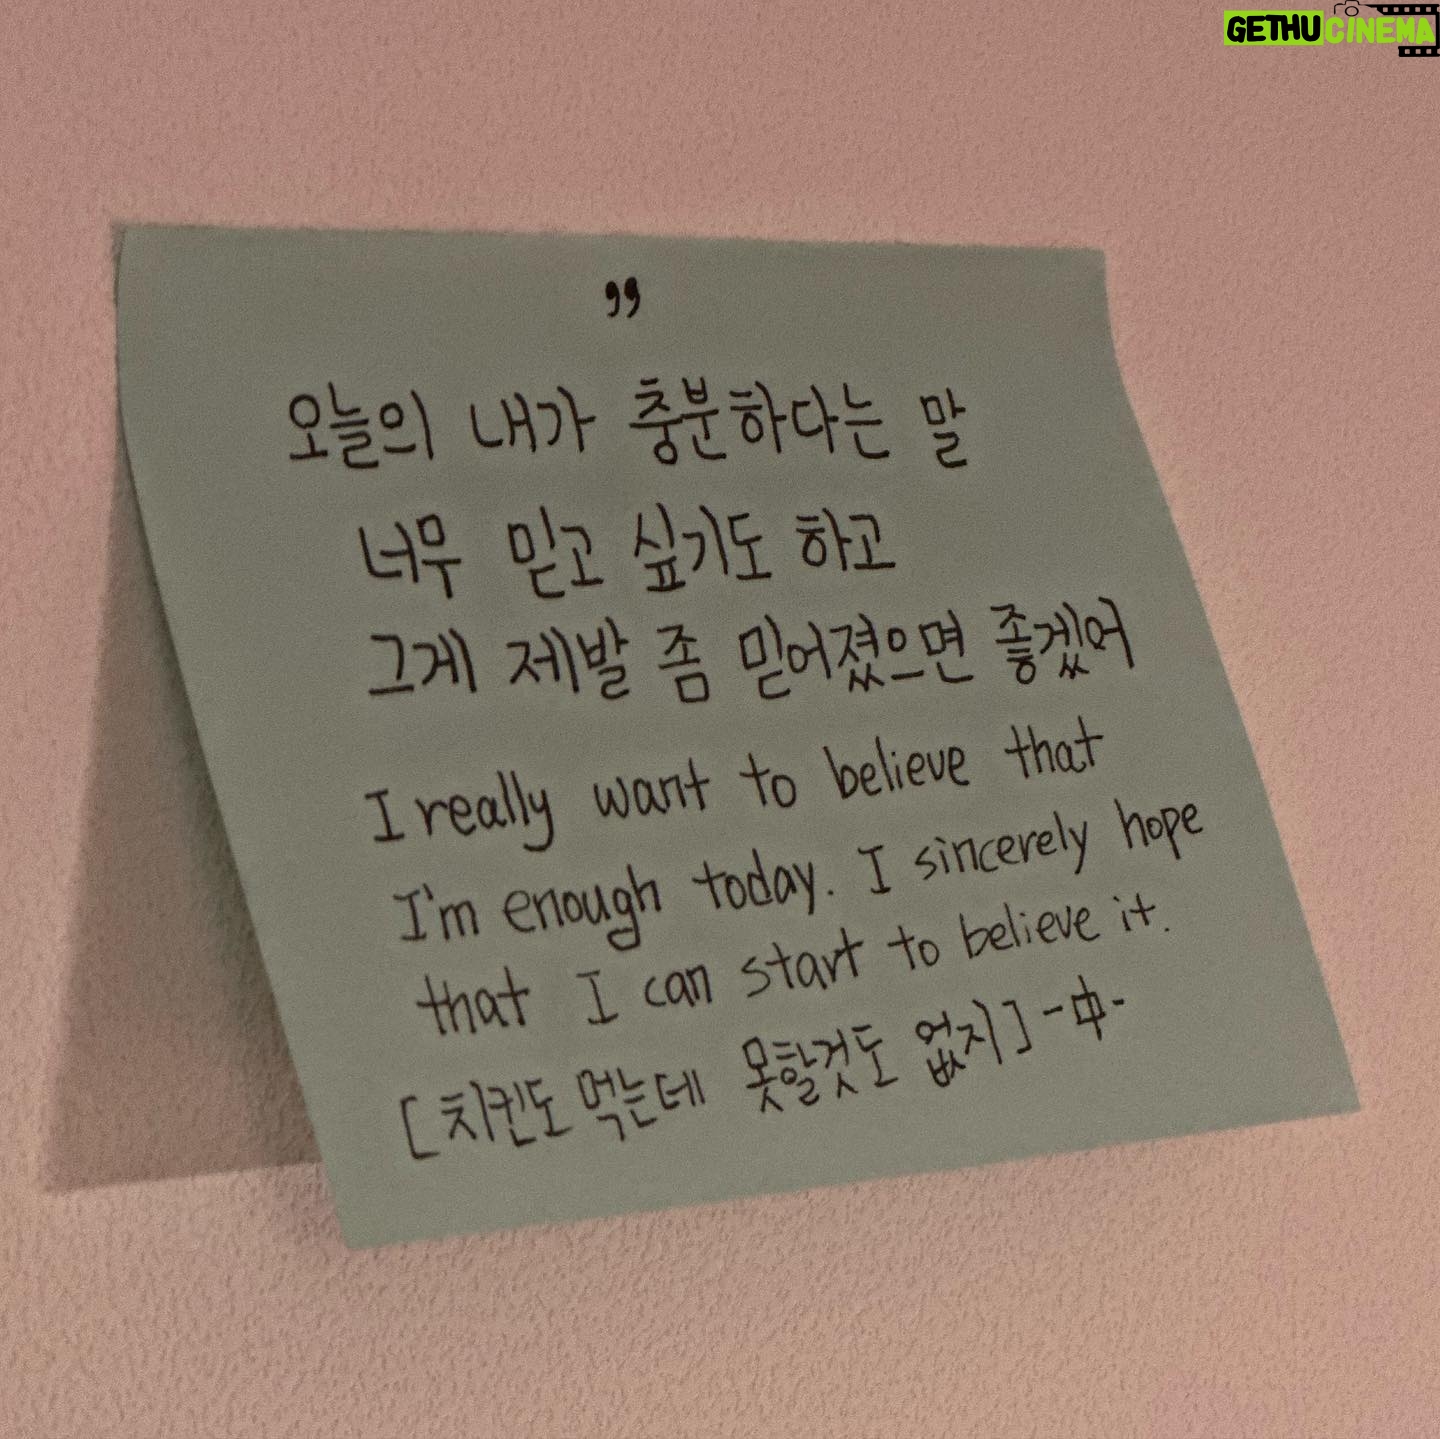 GETHU CINEMA
”
오늘의 내가 충분하다는 말
너무 믿고 싶기도 하고
그게 제발 좀 믿어졌으면 좋겠어
I really want to believe that
I'm enough today. I sincerely hope
that I can start to believe it.
[치킨도 먹는데 못할것도 없지] -中-